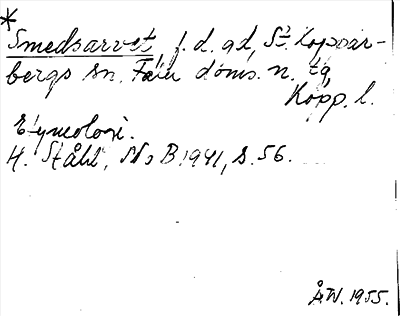 *
Smedsarvet, f. d. gd, St. Kopparbergs sn. Falu doms. n. tg,
Kopp. l.
Etymologi.
H. Ståhl, NoB 1941, s. 56.
ÅW. 1955.